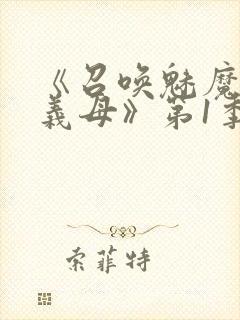 《召唤魅魔
義母》第1季
索菲特